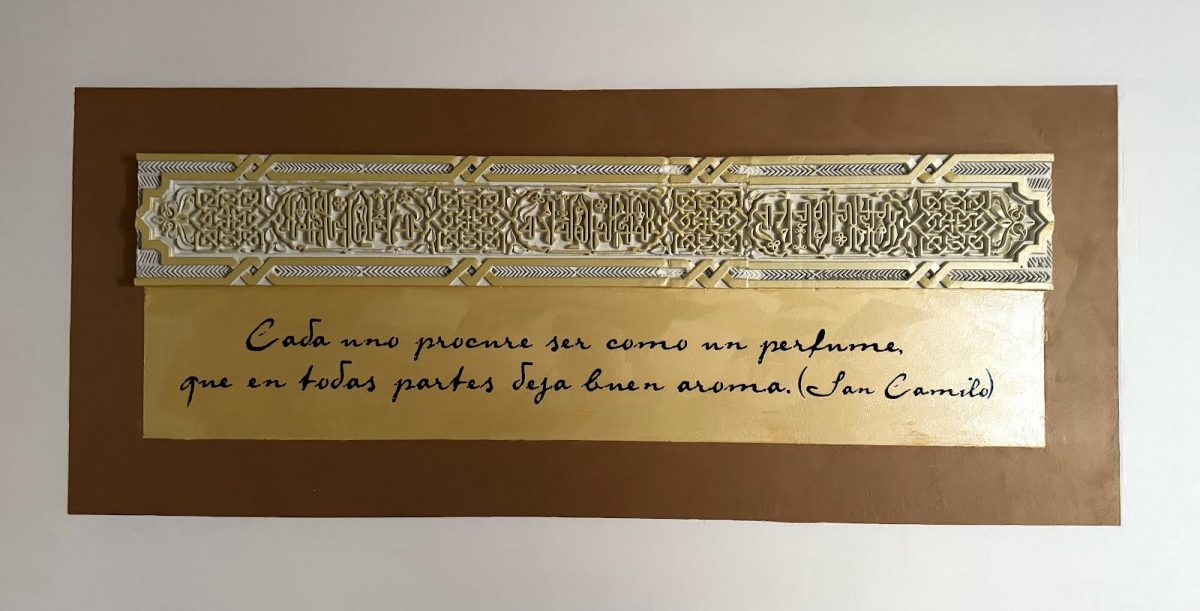 Cada uno procure ser como un perfume,
que en todas partes deja buen aroma. (San Camilo)